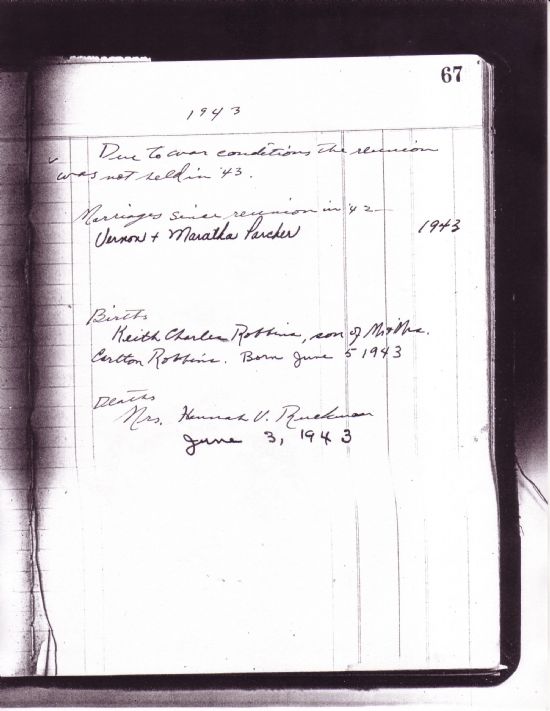 67
1943
Due to war conditions the reunion
was not held in '43.
Marriages since reunion in '42
Vernon + Maratha Parcher 1943
Births
Keith Charles Robbins, son of Mr + Mrs.
Carlton Robbins. Born June 5 1943
Deaths
Mrs. Hannah V. Ruckman
June 3, 1943